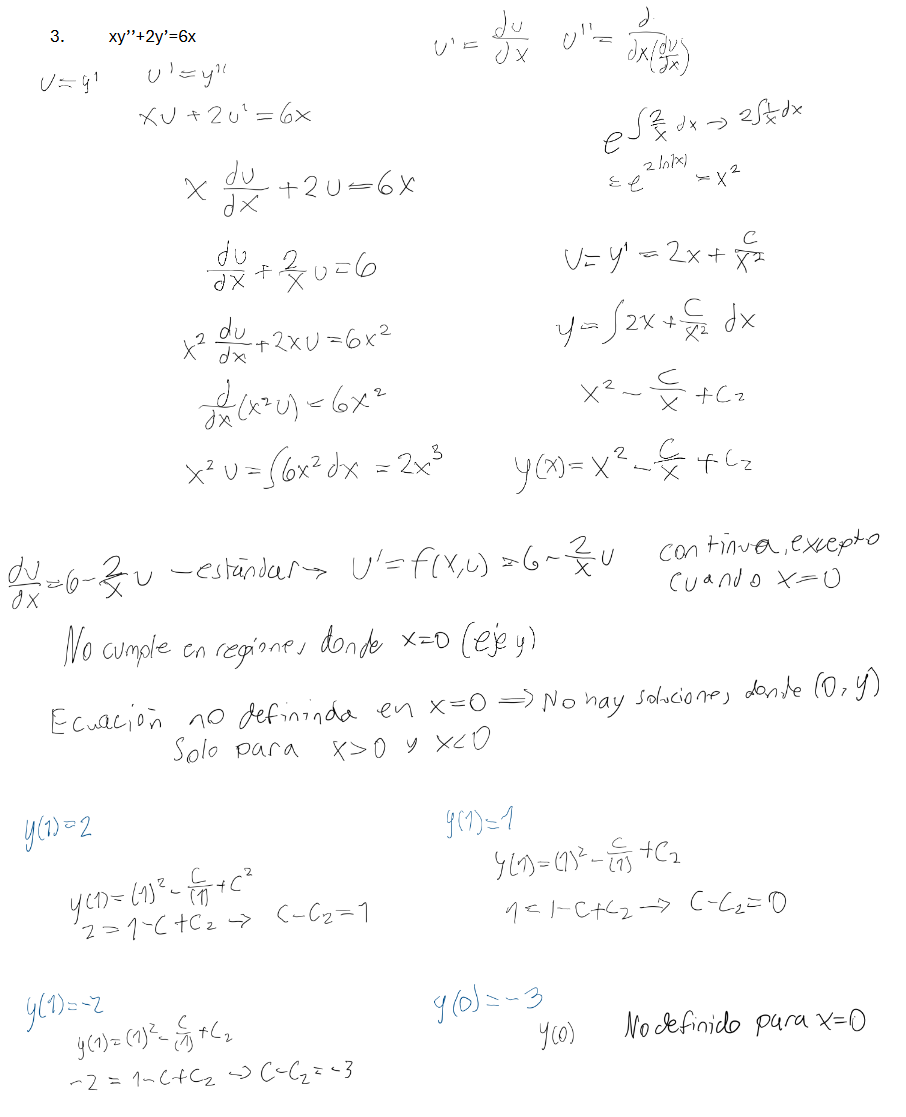 3. xy’’+2y’=6x
U' = du/dx U'' = d/dx(du/dx)
U=y' U'=y''
xU+2U'=6x
x du/dx +2U=6x
du/dx + 2/x U=6
x² du/dx +2xU=6x²
d/dx(x²U)=6x²
x²U=∫6x²dx = 2x³
e^∫2/x dx → 2∫1/x dx
= e^2ln|x| = x²
U=y' = 2x+ C/x²
y=∫2x+ C/x² dx
x² - C/x +C₂
y(x)=x² - C/x +C₂
du/dx=6-2/x U -estándar→ U'=f(x,u)=6-2/x U continua, excepto
cuando x=0
No cumple en regiones donde x=0 (eje y)
Ecuación no defininda en x=0 ⇒ No hay soluciones donde (0,y)
Solo para x>0 y x<0
y(1)=2
y(1)=(1)² - C/(1) +C²
2=1-C+C₂ → C-C₂=1
y(1)=1
y(1)=(1)² - C/(1) +C₂
1=1-C+C₂ → C-C₂=0
y(1)=-2
y(1)=(1)² - C/(1) +C₂
-2=1-C+C₂ → C-C₂=-3
y(0)=-3
y(0) No definido para x=0